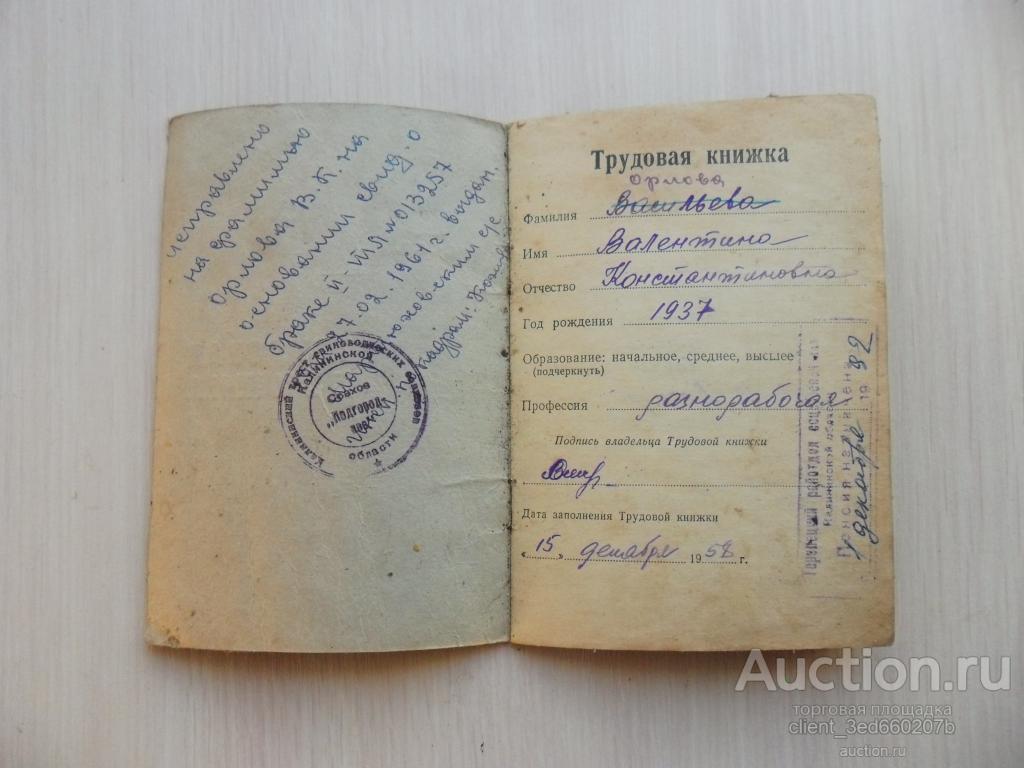 исправлено
на фамилию
Орлова В. К. на
основании свид. о
браке II-ТИ № 013257
7.02.1961 г. выдан.
кадрам:
Калининский трест свиноводческих совхозов
Калининской
Совхоз
„Подгород-
области
Трудовая книжка
Орлова
Фамилия Васильева
Имя Валентина
Отчество Константиновна
Год рождения 1937
Образование: начальное, среднее, высшее
(подчеркнуть)
Профессия разнорабочая
Подпись владельца Трудовой книжки
Дата заполнения Трудовой книжки
„15„ декабря 1958 г.
райотдел
Калининской
Пенсия назначена
декабря 1992
Auction.ru
торговая площадка
client_3ed660207b
auction.ru